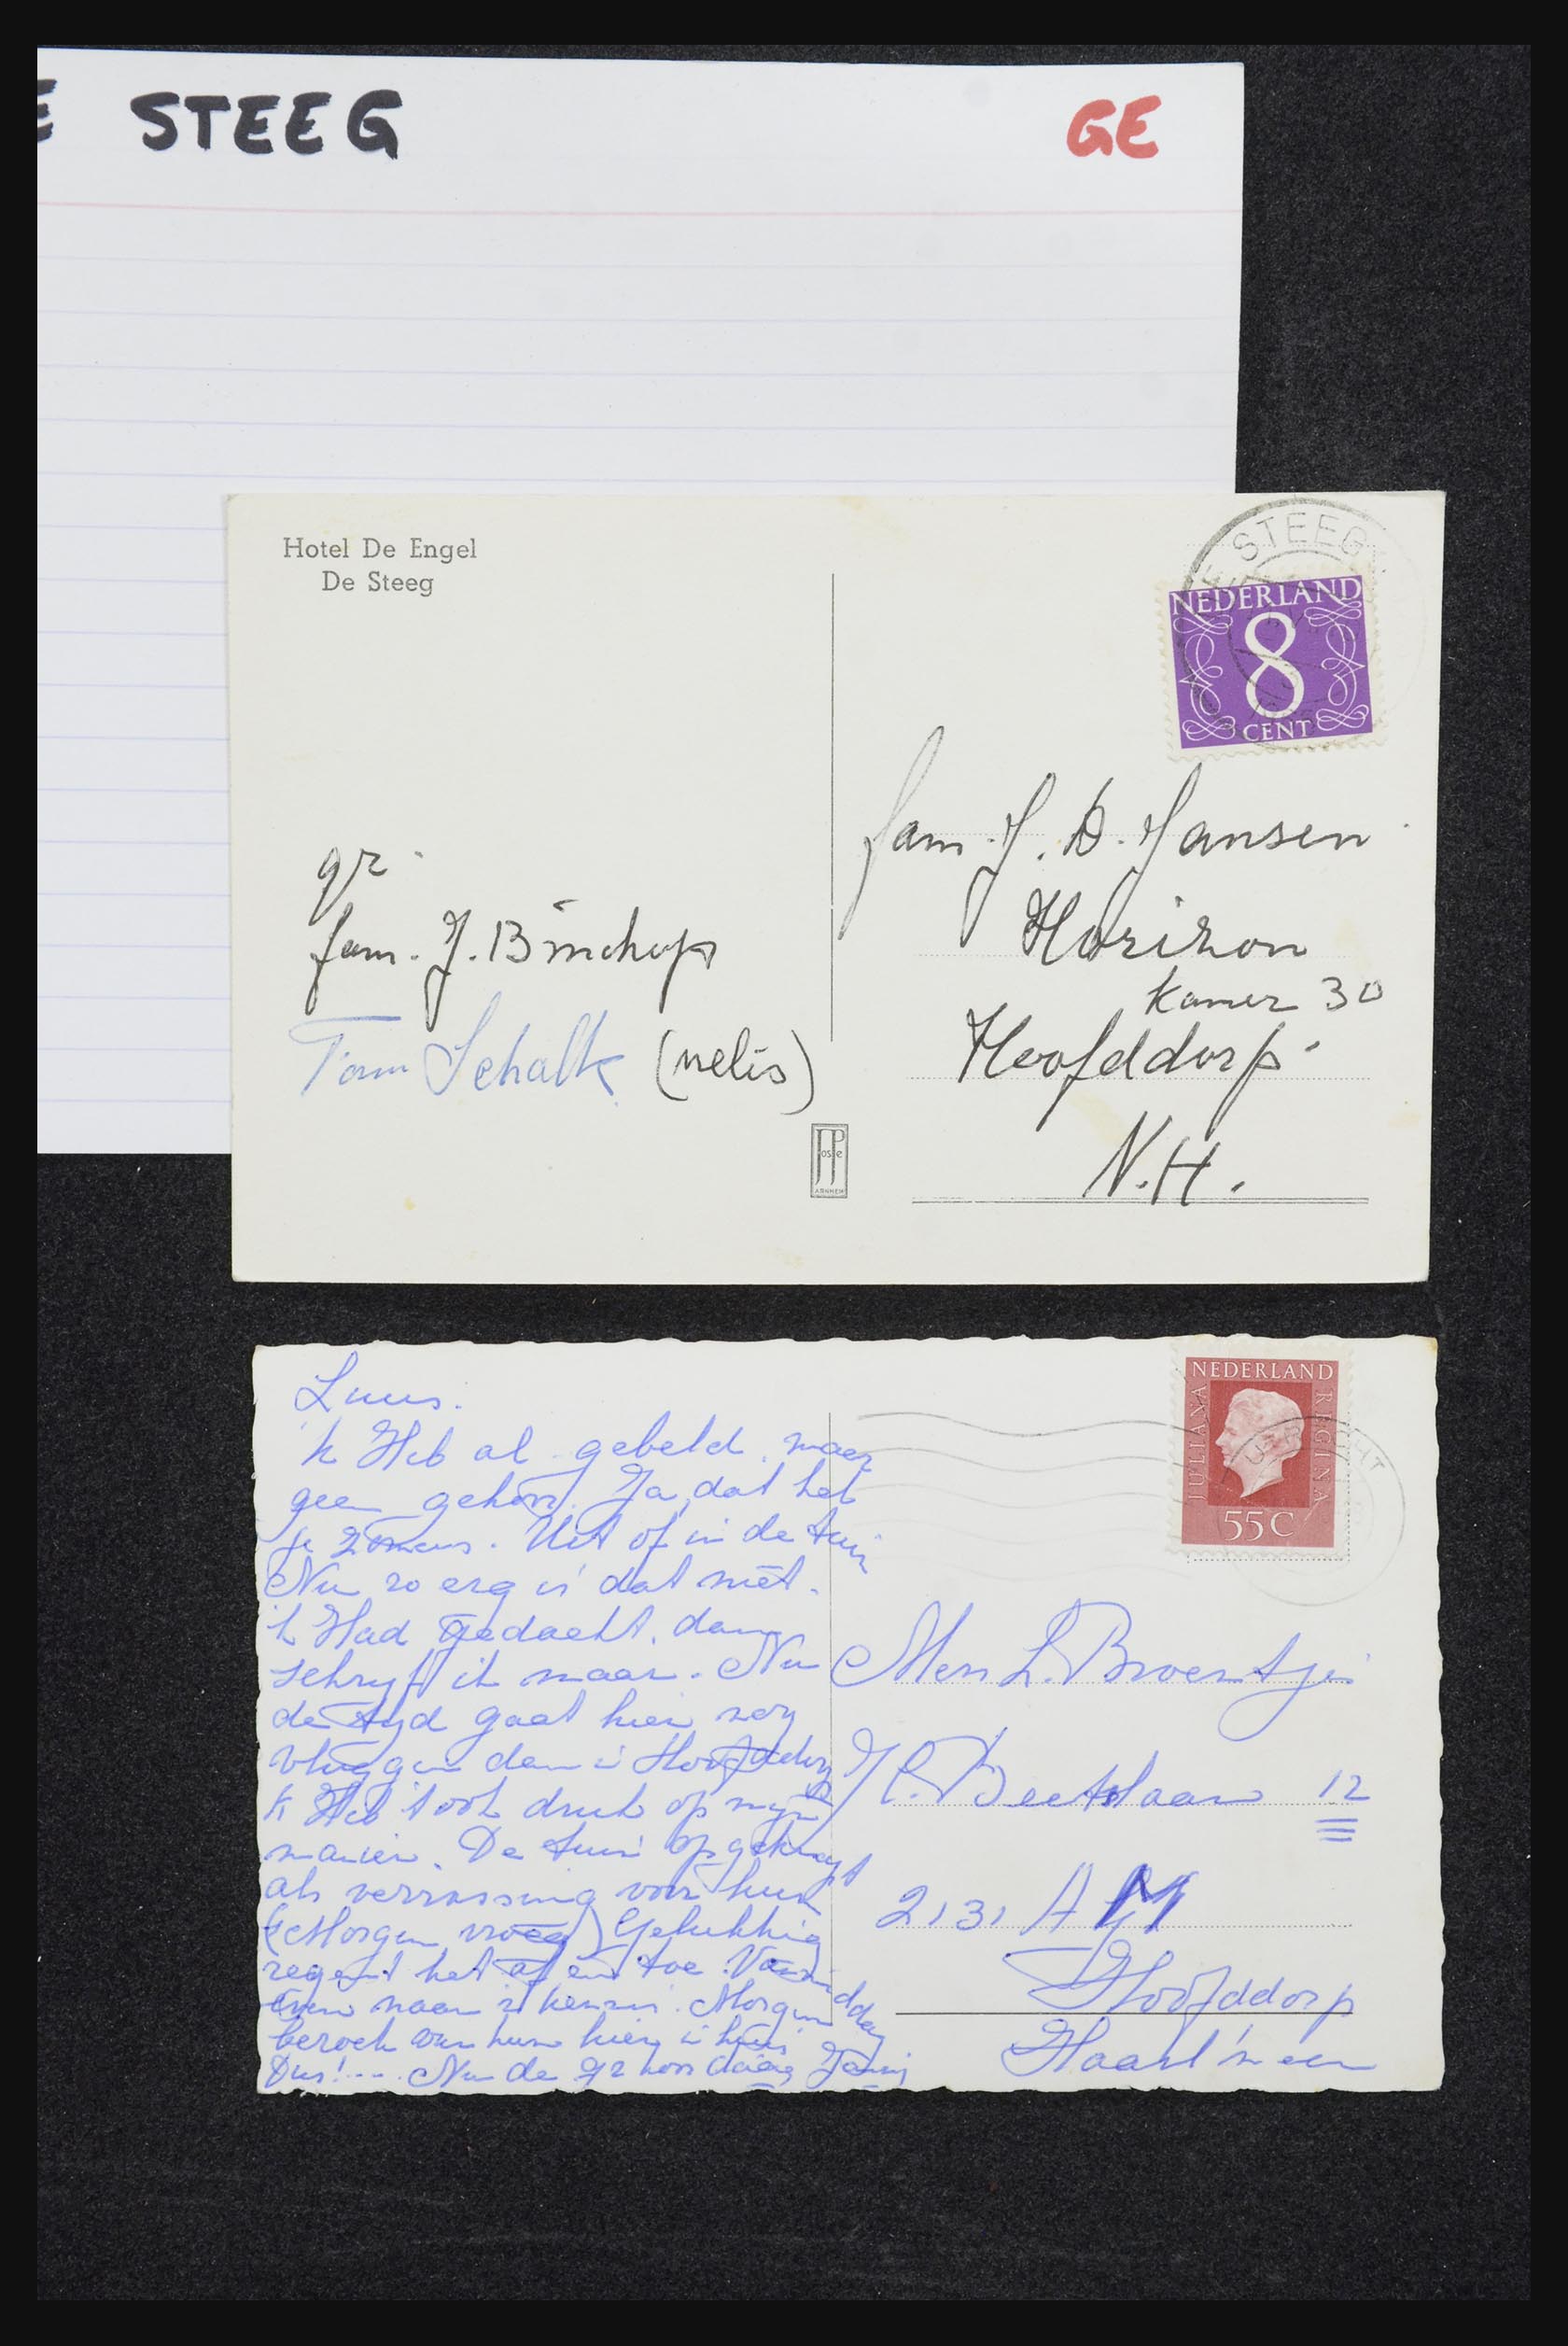 STEEG
GE
Hotel De Engel
De Steeg
DE STEEG
NEDERLAND
8
CENT
gr.
fam. J.
Tom Schalk (nelis)
fam. J. B. Jansen
Horizon
kamer 30
Hoofddorp.
N.H.
JosPé
ARNHEM
NEDERLAND
JULIANA REGINA
55 C
Luus.
'k Heb al gebeld, maar
geen gehoor. Ja, dat heb
je Zomers. Uit of in de tuin
Nu zo erg is dat niet.
'k Had gedacht, dan
schryf ik maar. Nu
de tyd gaat hier
vlugger dan in Hoofddorp
k Heb 't ook druk op myn
manier. De tuin
als verrassing voor hun
(Morgen vroeg) Gelukkig
regent het af en toe.
even naar Morgen
bezoek van hun hier in huis
Dus!.... Nu de gr
Mev. L. Broertjes
Beetslaan 12
2131 A M
Hoofddorp
Haarl'meer